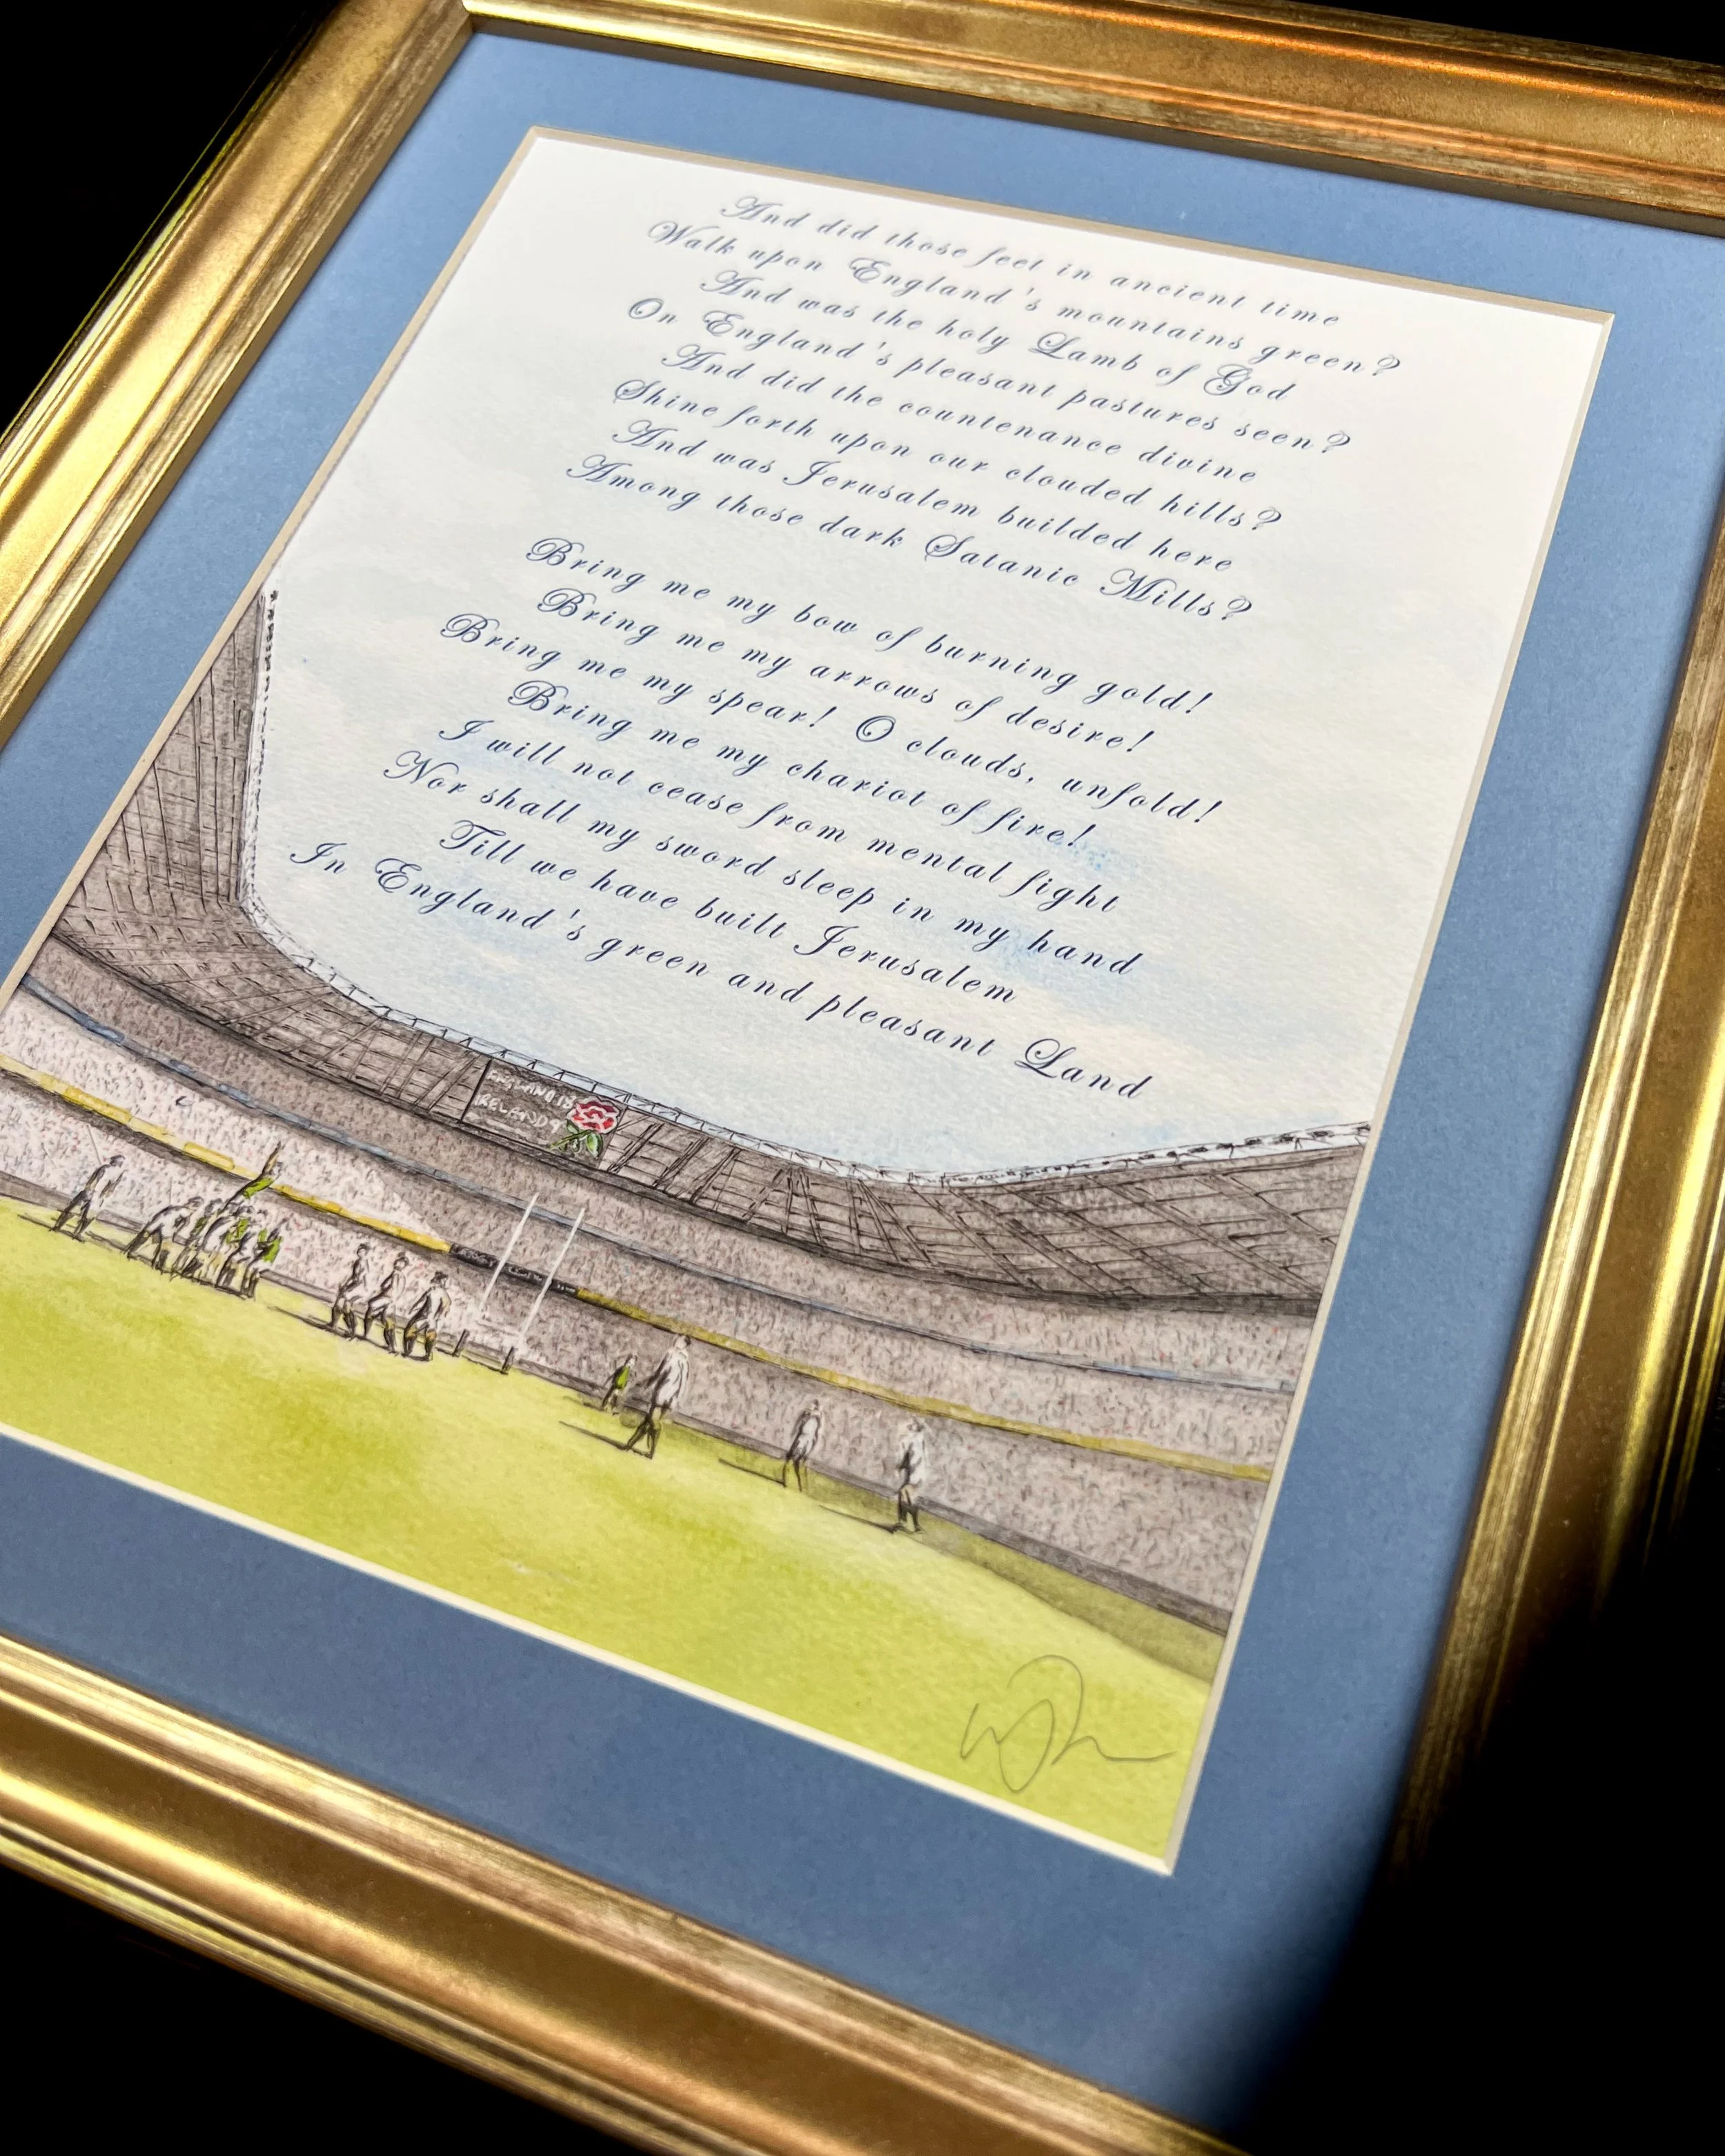 And did those feet in ancient time
Walk upon England's mountains green?
And was the holy Lamb of God
On England's pleasant pastures seen?
And did the countenance divine
Shine forth upon our clouded hills?
And was Jerusalem builded here
Among those dark Satanic Mills?
Bring me my bow of burning gold!
Bring me my arrows of desire!
Bring me my spear! O clouds, unfold!
Bring me my chariot of fire!
I will not cease from mental fight
Nor shall my sword sleep in my hand
Till we have built Jerusalem
In England's green and pleasant Land
ENGLAND 18
IRELAND 9